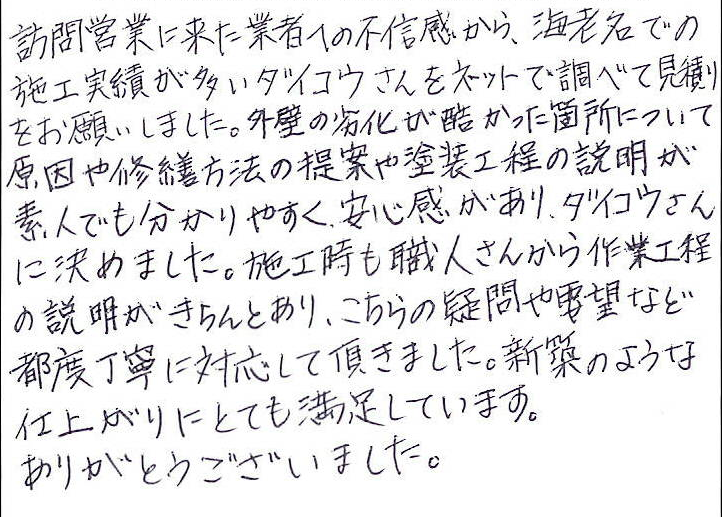 訪問営業に来た業者への不信感から、海老名での
施工実績が多いダイコウさんをネットで調べて見積り
をお願いしました。外壁の劣化が酷かった箇所について
原因や修繕方法の提案や塗装工程の説明が
素人でも分かりやすく、安心感があり、ダイコウさん
に決めました。施工時も職人さんから作業工程
の説明がきちんとあり、こちらの疑問や要望など
都度丁寧に対応して頂きました。新築のような
仕上がりにとても満足しています。
ありがとうございました。